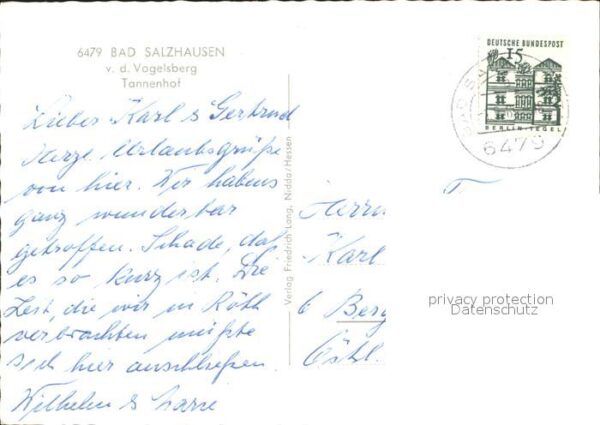 6479 BAD SALZHAUSEN
v. d. Vogelsberg
Tannenhof
Lieber Karl & Gertrud
Herzl. Urlaubsgrüße
von hier. Wir habens
ganz wunderbar
getroffen. Schade, daß
es so kurz ist. Die
Zeit, die wir in Röth
verbrachten müßte
sich hier anschließen.
Wilhelm &
Verlag Friedrich Lang, Nidda/Hessen
DEUTSCHE BUNDESPOST
15
BERLIN-TEGEL
6479
Herrn
Karl
6 Berg
privacy protection
Datenschutz